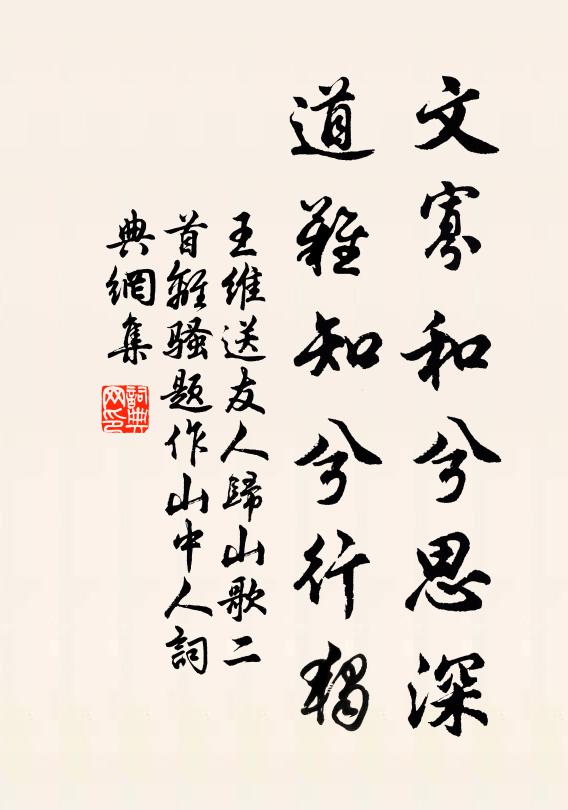 文寡和兮思深
道難知兮行獨
王維送友人歸山歌二
首離騷題作山中人詞
典網集
詞典
网印